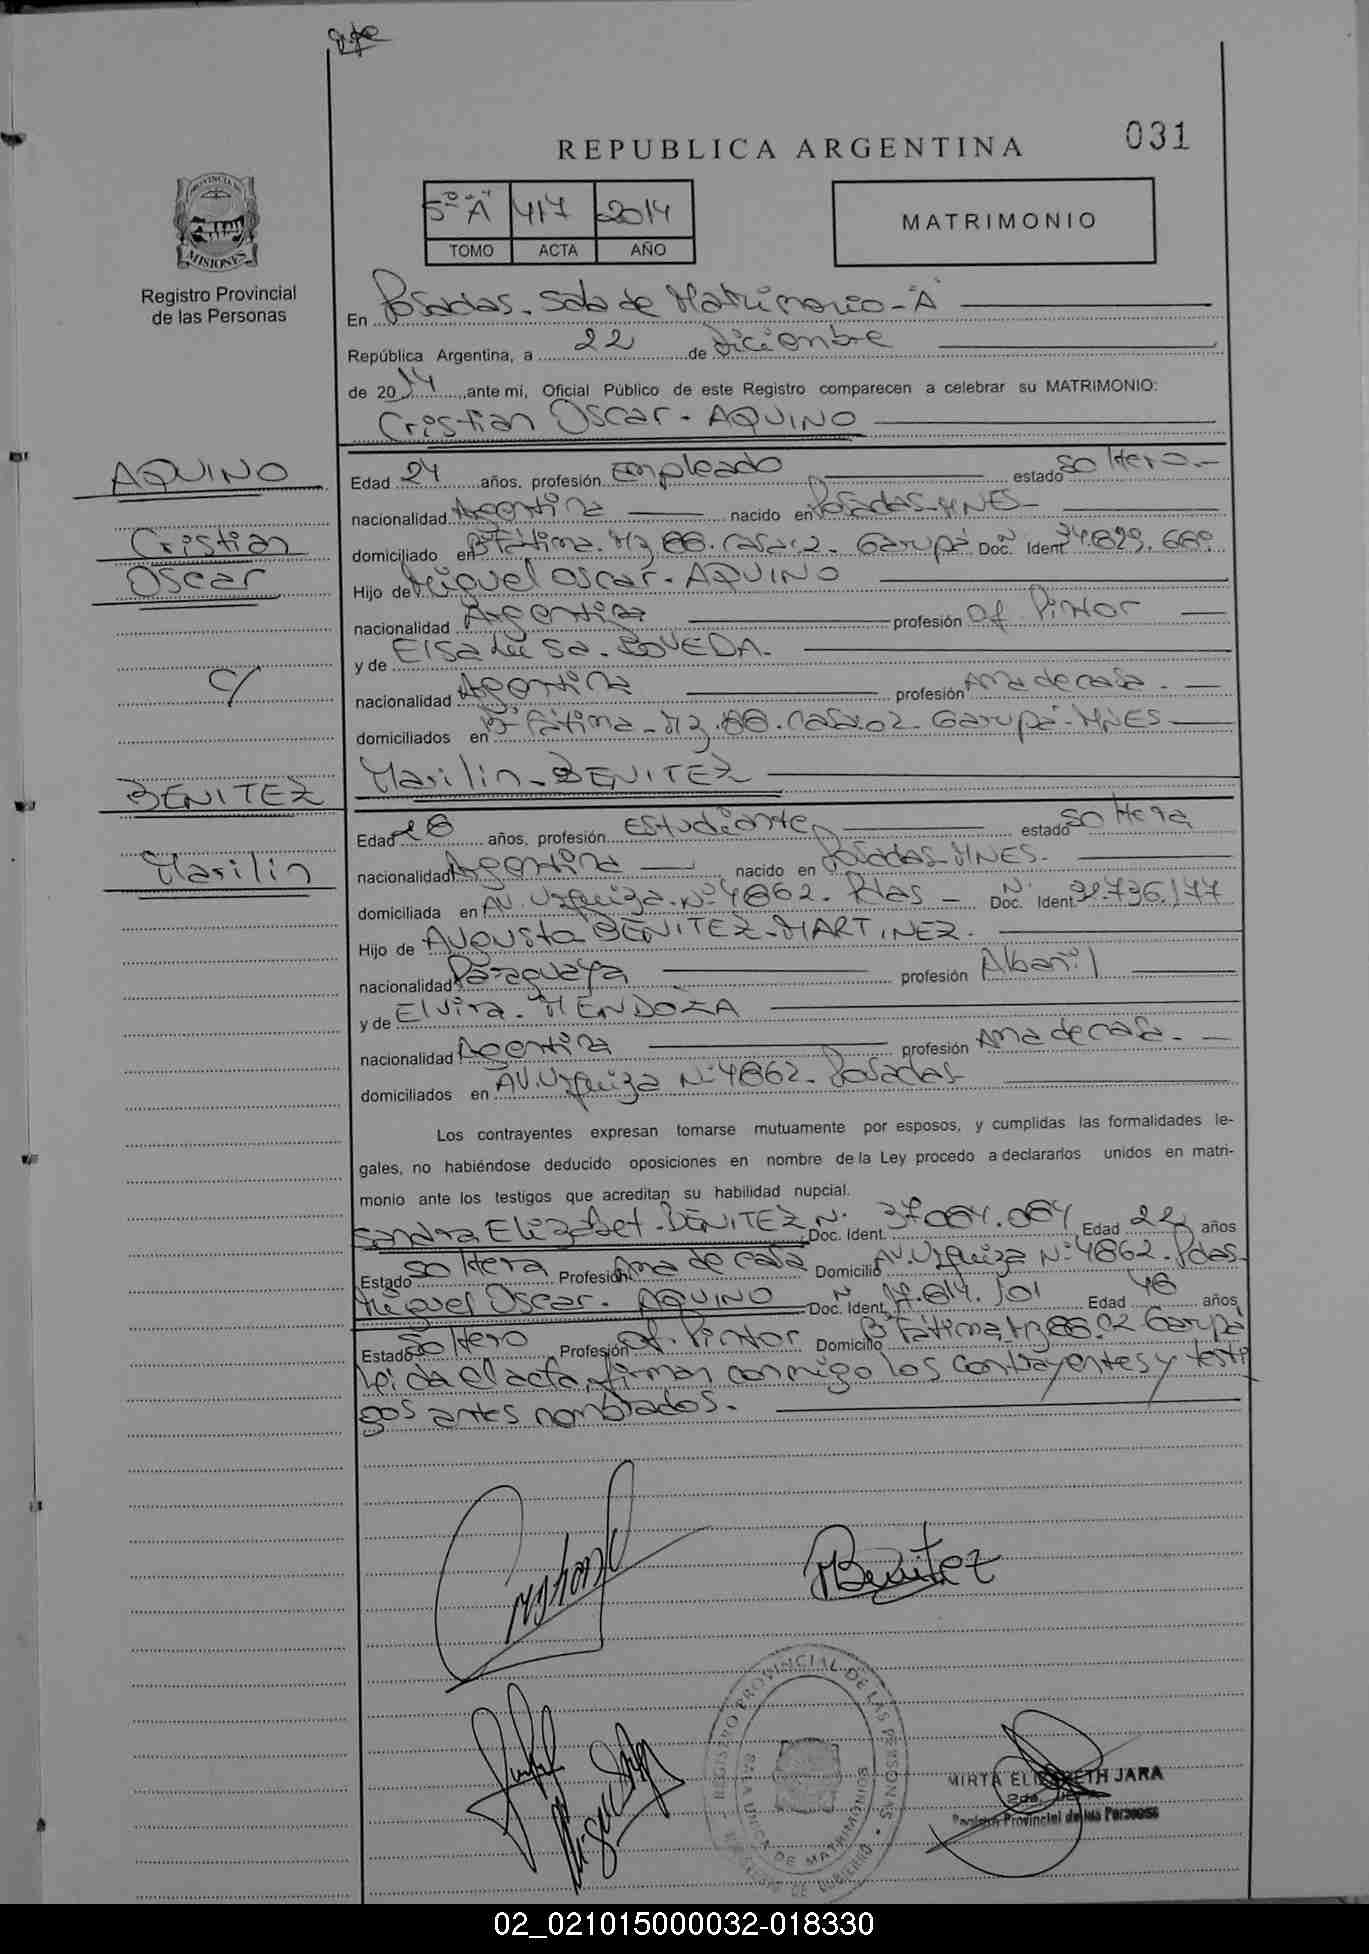 REPUBLICA ARGENTINA
031
5º "A" 417 2014
TOMO ACTA AÑO
MATRIMONIO
PROVINCIA DE
MISIONES
Registro Provincial
de las Personas
En Posadas. Sala de Matrimonio-"A"
República Argentina, a 22 de diciembre
de 2014, ante mi, Oficial Público de este Registro comparecen a celebrar su MATRIMONIO:
Cristian Oscar - AQUINO
AQUINO
Cristian
Oscar
c/
BENITEZ
Marilin
Edad 24 años, profesión Empleado estado soltero.-
nacionalidad Argentina nacido en Posadas-MNES-
domiciliado en Bº Fátima. Mz 88. casa 2. Garupá Doc. Nº Ident 34.899.669
Hijo de Miguel Oscar - AQUINO
nacionalidad Argentina profesión Of. Pintor
y de Elsa Luisa. BOVEDA.
nacionalidad Argentina profesión Ama de casa.
domiciliados en Bº Fátima - Mz. 88. casa 02 - Garupá - MNES
Marilin - BENITEZ
Edad 28 años, profesión Estudiante estado soltera
nacionalidad Argentina nacido en Posadas-MNES.
domiciliada en AV. Urquiza. Nº 4862. Pdas - Doc. Nº Ident 32.736.177
Hijo de Augusto BENITEZ-MARTINEZ.
nacionalidad Paraguaya profesión Albañil
y de Elvira. MENDOZA
nacionalidad Argentina profesión Ama de casa.
domiciliados en AV. Urquiza Nº 4862. Posadas
Los contrayentes expresan tomarse mutuamente por esposos, y cumplidas las formalidades le-
gales, no habiéndose deducido oposiciones en nombre de la Ley procedo a declararlos unidos en matri-
monio ante los testigos que acreditan su habilidad nupcial.
Sandra Elizabet - BENITEZ Nº Doc. Ident. 37.084.084 Edad 22 años
Estado soltera Profesión Ama de casa Domicilio AV. Urquiza Nº 4862. Pdas.
Miguel Oscar. AQUINO Nº Doc. Ident. 17.814.101 Edad 48 años
Estado Soltero Profesión Of. Pintor Domicilio Bº Fátima Mz 88. 02 Garupá
Leida el acta, firman conmigo los contrayentes y testi
gos antes nombrados.-
MBenitez
REGISTRO PROVINCIAL DE LAS PERSONAS
SALA UNICA DE MATRIMONIOS
MIRTA ELIZABETH JARA
Registro Provincial de las Personas
02_021015000032-018330